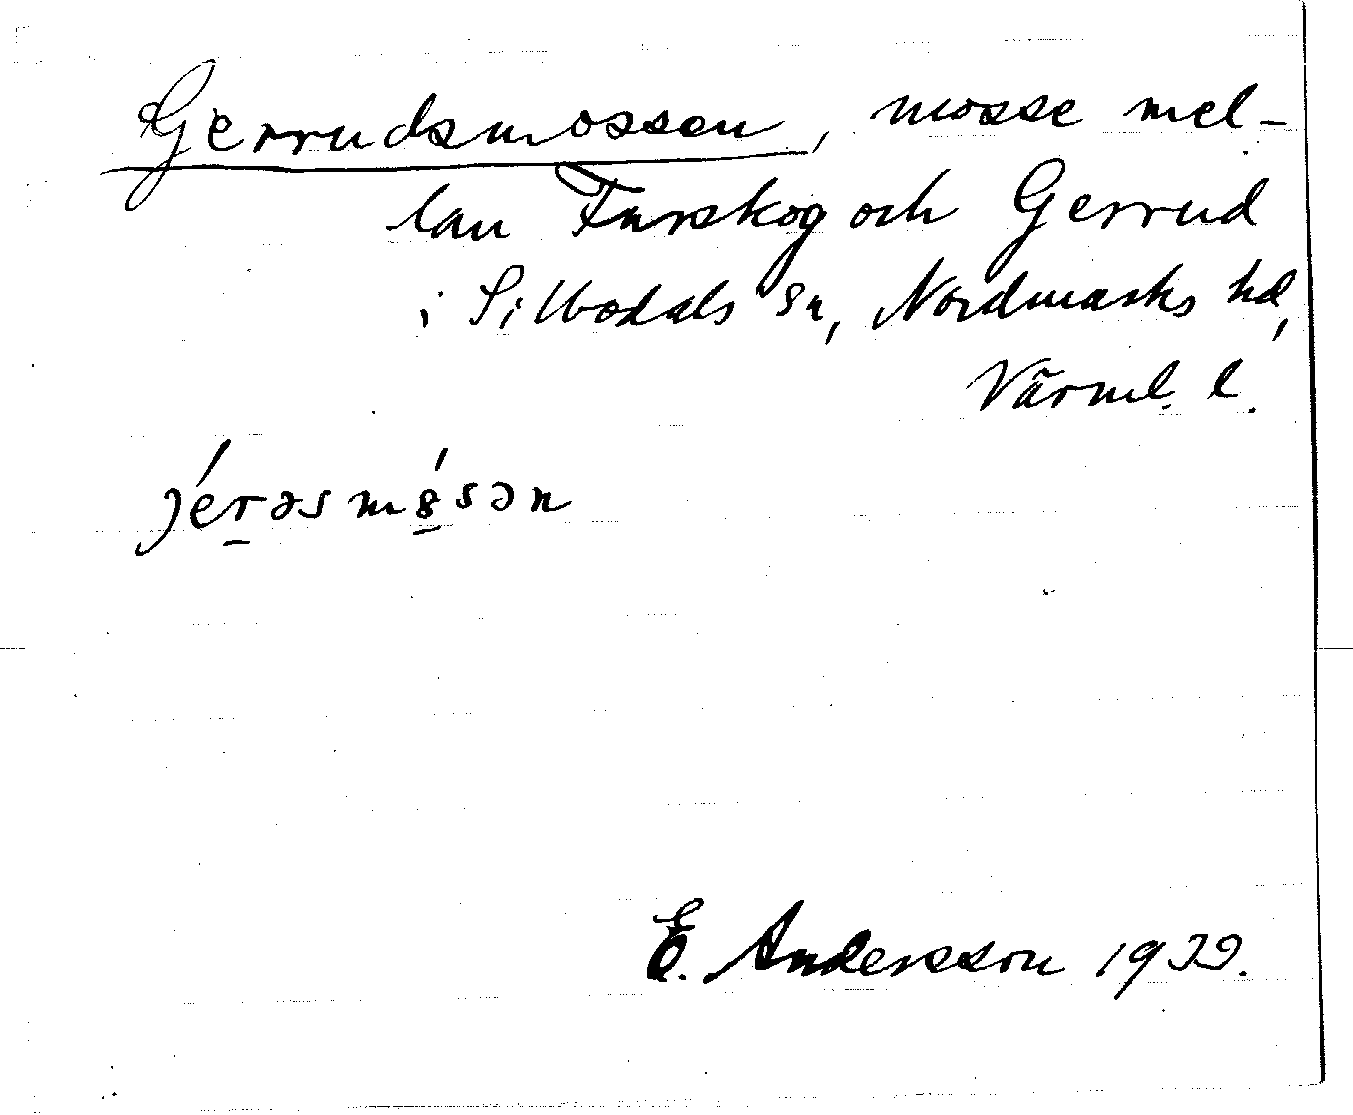 Gerrudsmossen, mosse mel-
lan Furskog och Gerrud
i Sillbodals sn, Nordmarks hd,
Värml. l.
jérəsmósən
E. Andersson 1932.